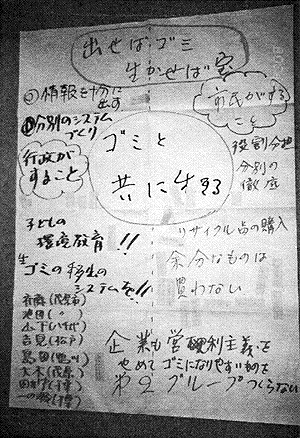 出せばゴミ
生かせば宝
②情報を十分に
出す
①分別のシステム
づくり
行政が
すること
市民がする
こと
ゴミと
共に生きる
役割分担
分別の
徹底
子どもの
環境教育!!
生ゴミの再生の
システムを!!
リサイクル品の購入
余分なものは
買わない
斉藤(茂原市)
池田(〃)
山下(八千代)
吉見(松戸)
島田(
大木(茂原)
田村(千葉)
一の瀬(千葉)
企業も営利主義を
やめてゴミになりやすいものを
つくらない
第2グループ